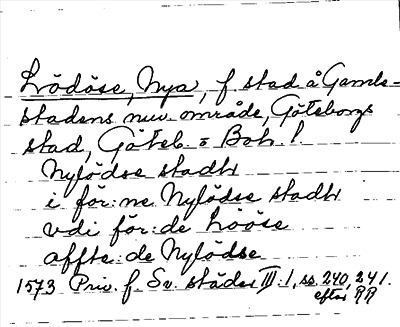 Lödöse, Nya, f. stad å Gamle-
stadens nuv. område, Göteborgs
stad, Göteb. o Boh. l.
Nylödse stadh
i för:ne Nylödse stadh
vdi för:de Lööse
affte:de Nylödse
1573 Priv. f. Sv. städer III:1, ss. 240, 241.
efter RR